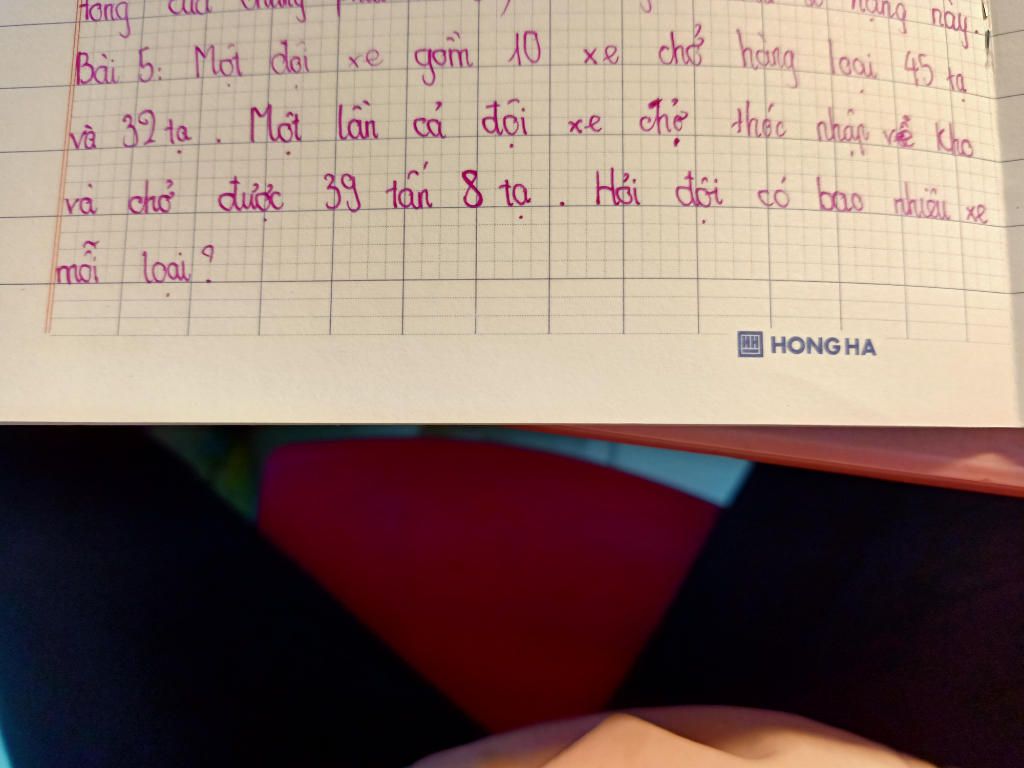 này.
Bài 5: Một đội xe gồm 10 xe chở hàng loại 45 tạ
và 32 tạ. Một lần cả đội xe chở thóc nhập về kho
và chở được 39 tấn 8 tạ. Hỏi đội có bao nhiêu xe
mỗi loại?
HH HONG HA